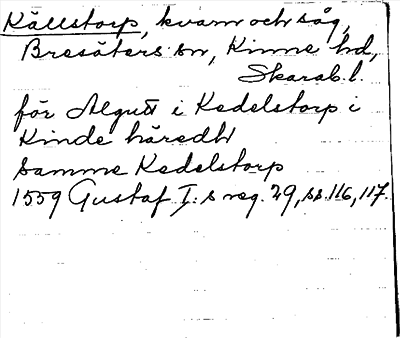 Källstorp, kvarn och såg,
Bresäters sn, Kinne hd,
Skarab. l.
för Algutt i Kedelstorp i
Kinde häredt
samme Kedelstorp
1559 Gustaf I:s reg. 29, ss. 116, 117.